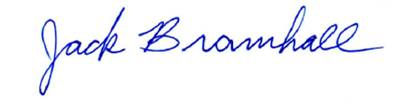 Jack Bramhall